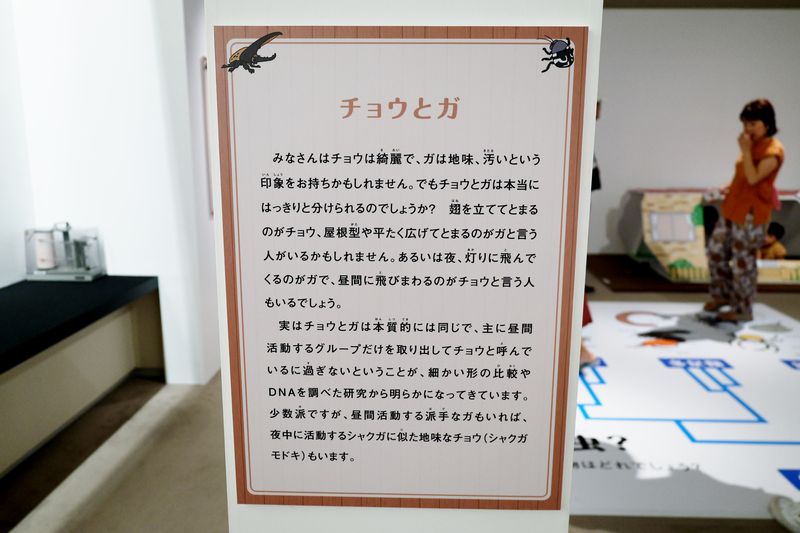 チョウとガ
みなさんはチョウは綺麗で、ガは地味、汚いという
印象をお持ちかもしれません。でもチョウとガは本当に
はっきりと分けられるのでしょうか？　翅を立ててとまる
のがチョウ、屋根型や平たく広げてとまるのがガと言う
人がいるかもしれません。あるいは夜、灯りに飛んで
くるのがガで、昼間に飛びまわるのがチョウと言う人
もいるでしょう。
実はチョウとガは本質的には同じで、主に昼間
活動するグループだけを取り出してチョウと呼んで
いるに過ぎないということが、細かい形の比較や
DNAを調べた研究から明らかになってきています。
少数派ですが、昼間活動する派手なガもいれば、
夜中に活動するシャクガに似た地味なチョウ（シャクガ
モドキ）もいます。
虫？
はどれでしょう？